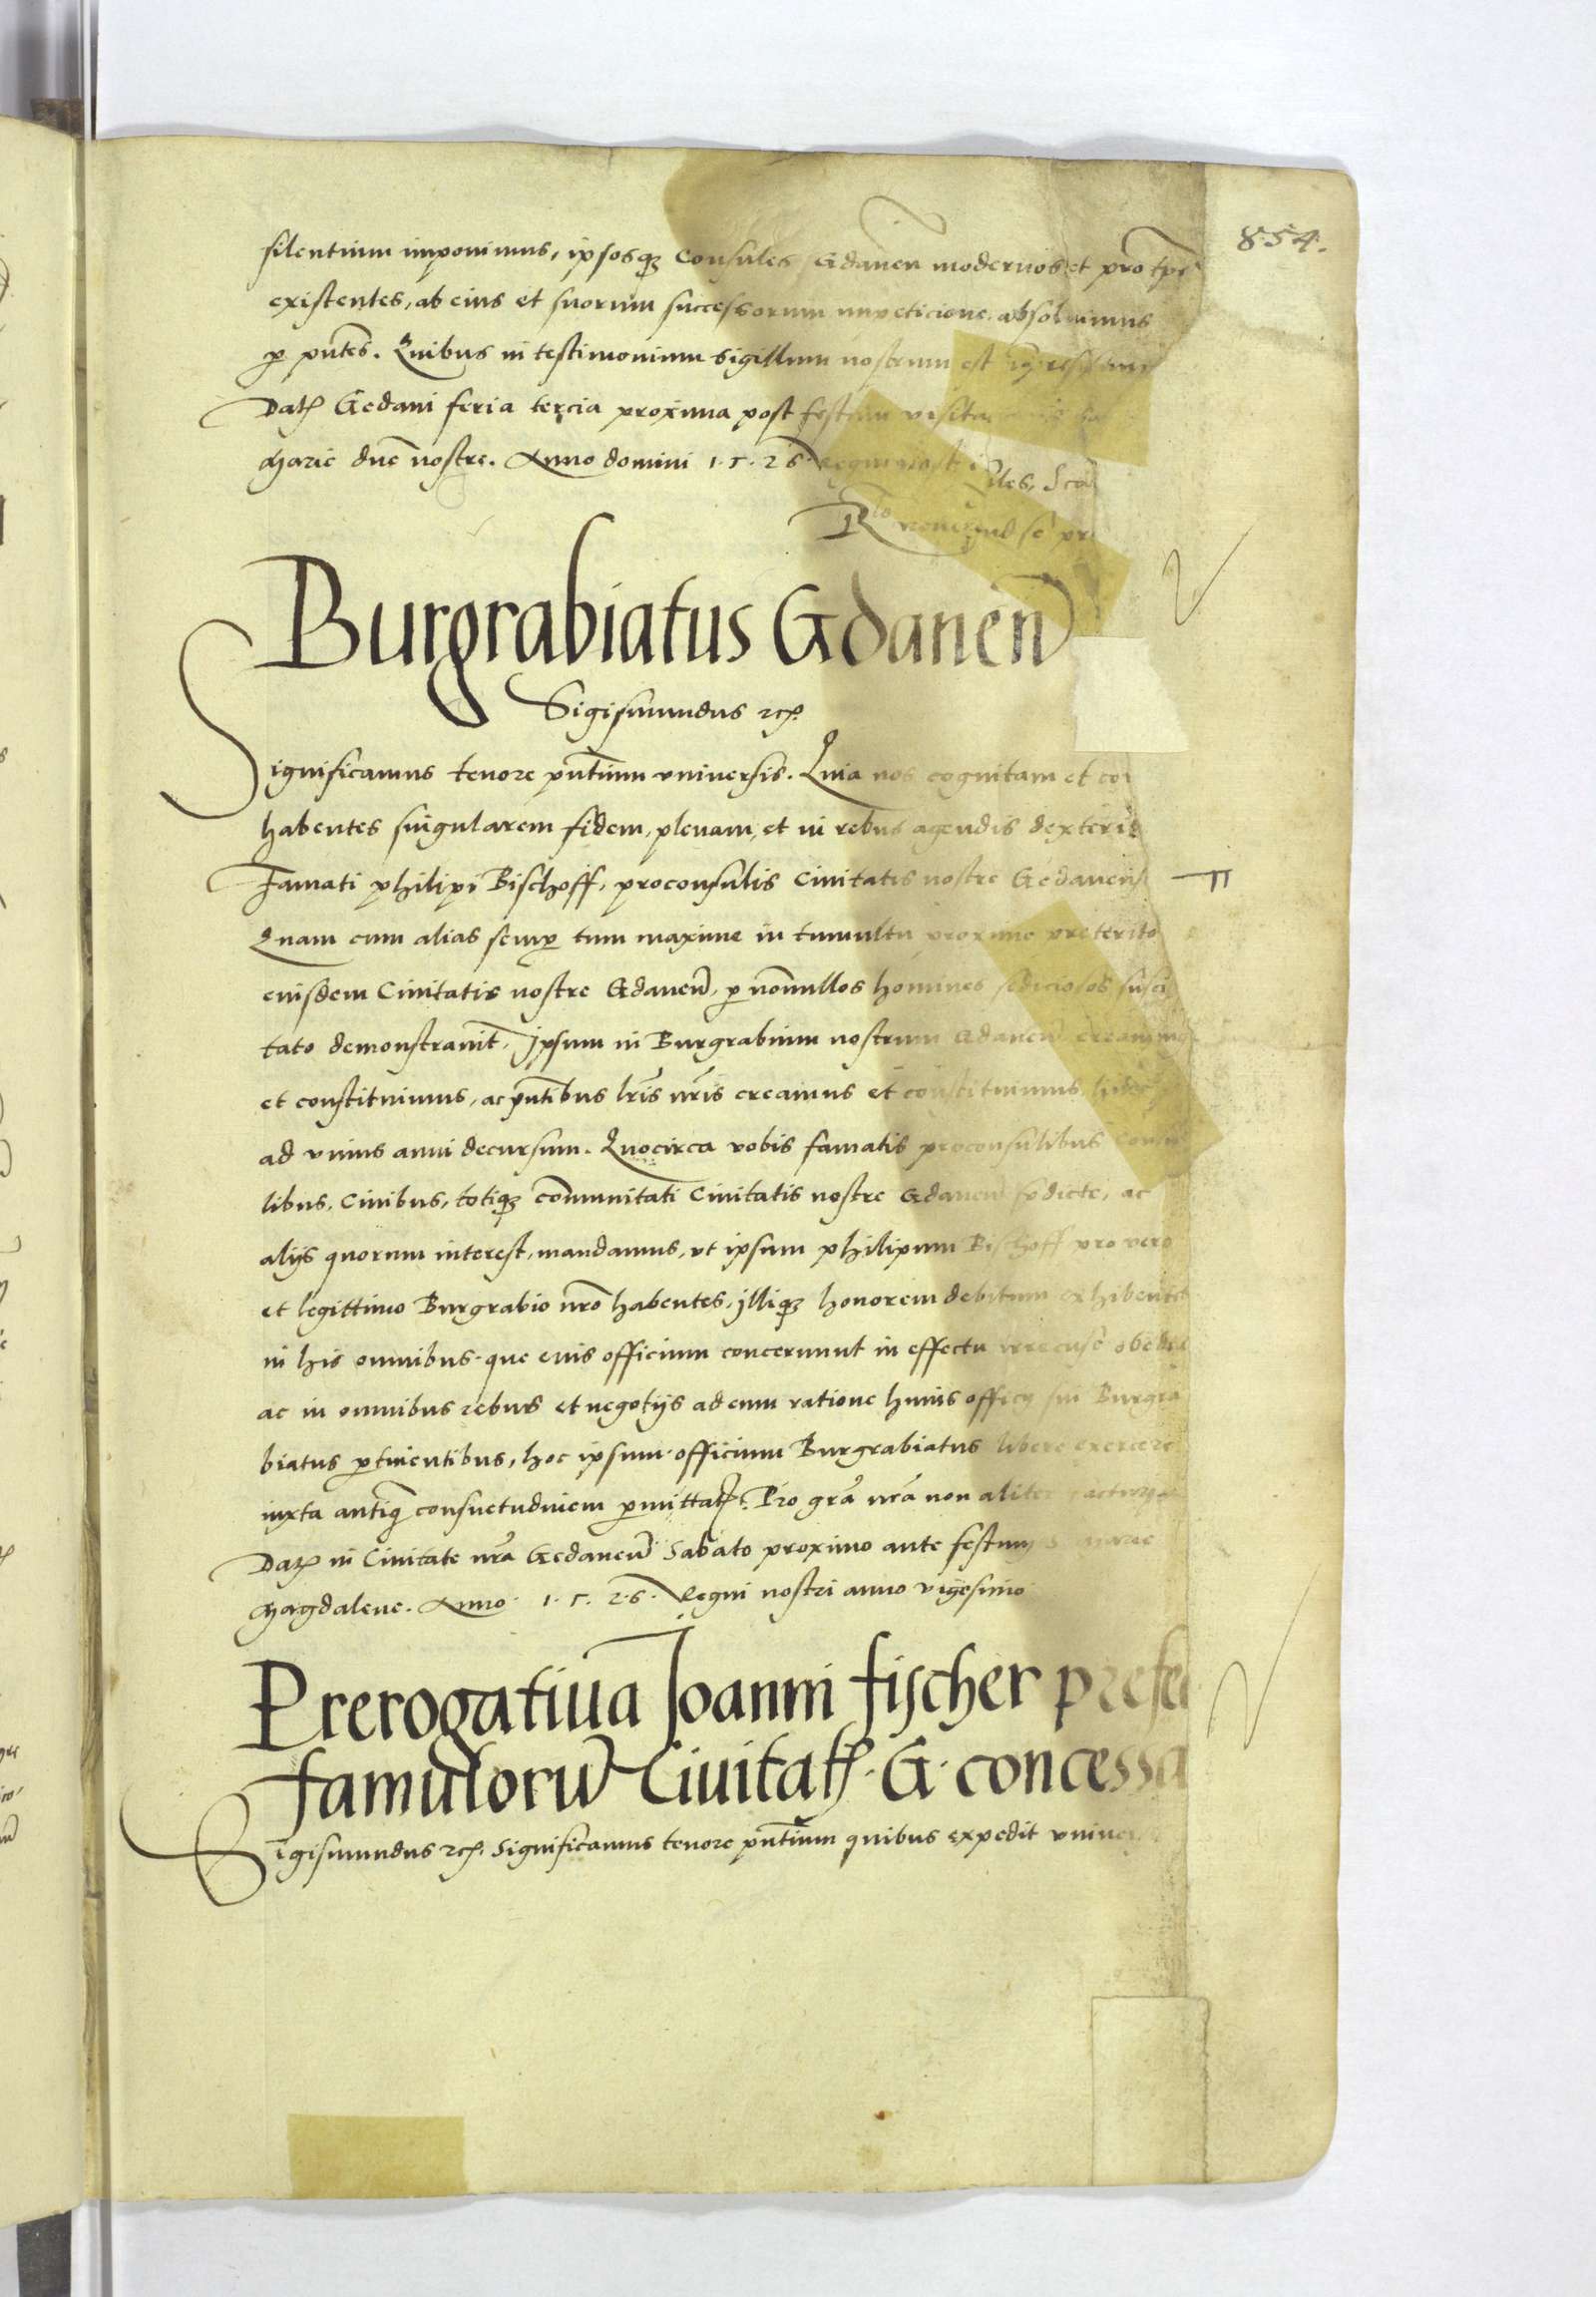 854.
silentium imponimus, ipsosqꝫ Consules Gdanen̄ modernos et pro tp̄e
existentes, ab eius et suorum successorum impeticione absolvimus
ꝑ pn̄tes. Quibus in testimonium sigillum nostrum est
Datꝭ Gedani feria tercia proxima post festum
Marie dn̄e nostre. Anno domini 1.5.26.
Burgrabiatus Gdanen̄
Sigismundus ꝛcꝭ
Significamus tenore pn̄tium vniversis. Quia nos cognitam et
habentes singularem fidem, plenam, et in rebus agendis
Famati philipi Bischoff, proconsulis Civitatis nostre Gedanens
Quam cum alias semꝑ tum maxime in tumultu proxime preterito
eiusdem Civitatis nostre Gdanen̄, ꝑ nōnnullos homines sediciosos susci
tato demonstravit, Ipsum in Burgrabium nostrum Gdanen̄ creavimus
et constituimus, ac pn̄tibus lr̄is nr̄is creamus et constituimus
ad vnius anni decursum. Quocirca vobis famatis proconsulibus Consu
libus, Civibus, totiqꝫ cōmmunitati Civitatis nostre Gdanen̄ p̄dicte, ac
alijs quorum interest, mandamus, vt ipsum philipum Bischoff pro vero
et legittimo Burgrabio nr̄o habentes, illiqꝫ honorem debitum exhibentes
in his omnibus que eius officium concernunt in effectu
ac in omnibus rebus et negotijs ad eum ratione huius officij sui Burgra
biatus ꝑtinentibus, hoc ipsum officium Burgrabiatus libere exercere
iuxta antiq̄ consuetudinem ꝑmittatꝭ. Pro gr̄a nr̄a non aliter
Datꝭ in Civitate nr̄a Gedanen̄ Sabato proximo ante festum
Magdalene. Anno 1.5.26. Regni nostri anno vigesimo
Prerogativa Joanni fischer prefec
famulorū Civitatꝭ G. concessa
Sigismundus ꝛcꝭ Significamus tenore pn̄tium quibus expedit vniver